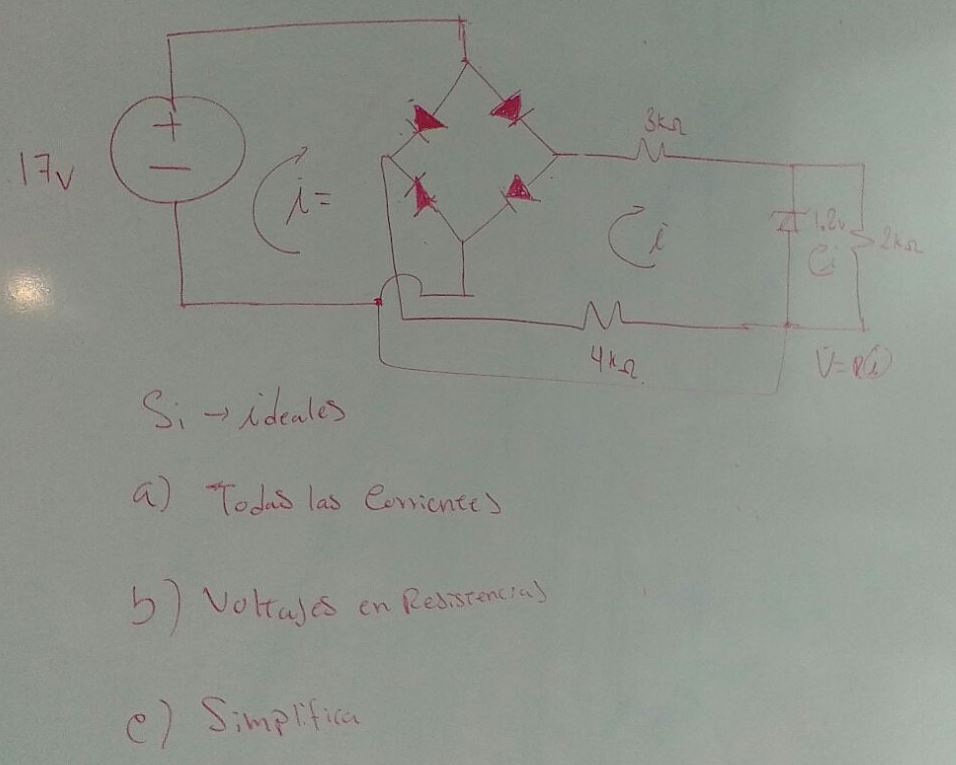 3kΩ
+
−
17v
i=
i
1.2v
i
2kΩ
4kΩ
V=R(i)
Si → ideales
a) Todas las Corrientes
b) Voltajes en Resistencias
c) Simplifica